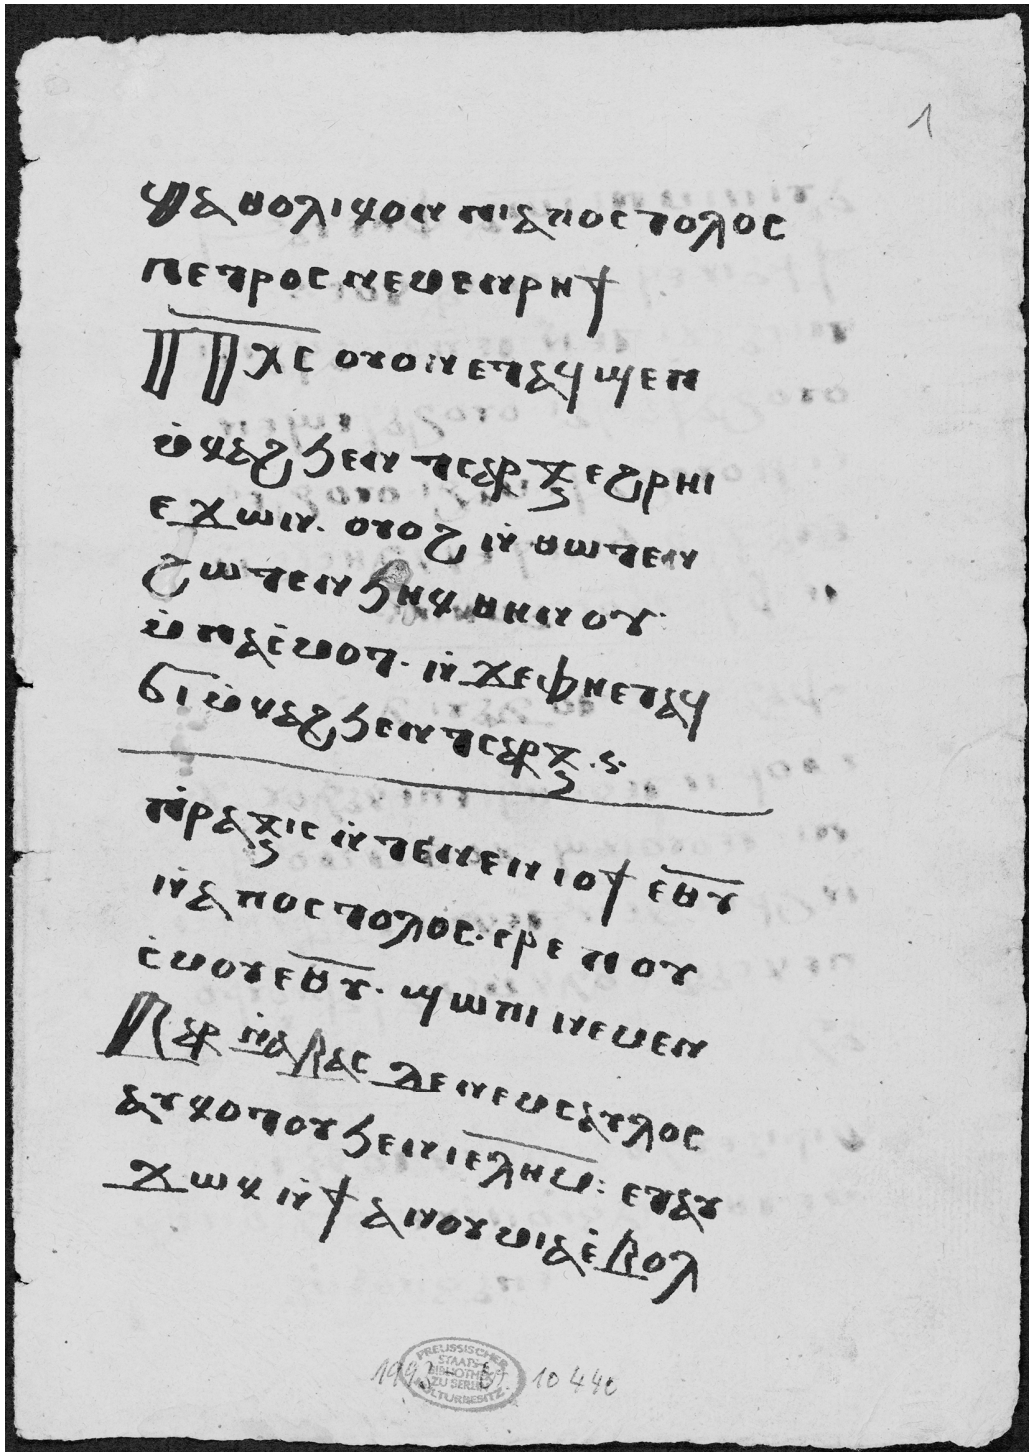 ⲕⲁⲑⲟⲗⲓⲕⲟⲛ ⲡⲓⲁⲡⲟⲥⲧⲟⲗⲟⲥ
ⲡⲉⲧⲣⲟⲥ ⲛⲉⲙⲉⲛⲣⲏϯ
Ⲡⲭⲥ ⲟⲩⲟⲛ ⲉⲧⲁϥϣⲉⲡ
ⲙ̇ⲕⲁϩ ϧⲉⲛ ⲧⲥⲁⲣⲝ ⲉϩⲣⲏⲓ
ⲉϫⲱⲛ. ⲟⲩⲟϩ ⲛ̇ⲑⲱⲧⲉⲛ
ϩⲱⲧⲉⲛ ϧⲏⲕ ⲑⲏⲛⲟⲩ·
ⲙ̇ⲡⲁⲥ̇ⲙⲟⲧ. ⲛ̇ϫⲉⲫⲏⲉⲧⲁϥ
ϭⲓⲙ̇ⲕⲁϩ ϧⲉⲛ ⲧⲥⲁⲣⲝ .ⲋ.
ⲡ̇ⲣⲁⲝⲓⲥ ⲛ̇ⲧⲉⲛⲉⲛⲓⲟϯ ⲉ̅ⲑ̅ⲩ̅
ⲛ̇ⲁⲡⲟⲥⲧⲟⲗⲟⲥ. ⲉⲣⲉ ⲡⲟⲩ
ⲥ̇ⲙⲟⲩ ⲉ̅ⲑ̅ⲩ̅. ϣⲱⲡⲓ ⲛⲉⲙⲉⲛ
Ⲃⲁⲣⲛ̇ⲁⲃⲁⲥ ⲇⲉ ⲛⲉⲙ ⲥⲁⲩⲗⲟⲥ
ⲁⲩⲕⲟⲧⲟⲩ ϧⲉⲛ ⲓⲉ̅ⲗ̅ⲏ̅ⲙ̅: ⲉⲧⲁⲩ
ϫⲱⲕ ⲛ̇ϯⲇⲓⲛⲟⲩⲙⲓⲁ ⲉ̇ⲃⲟⲗ
1
PREUSSISCHER STAATSBIBLIOTHEK ZU BERLIN KULTURBESITZ
10 440